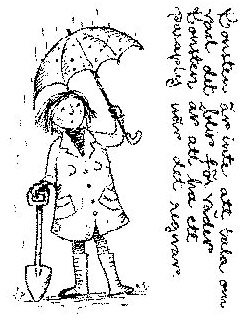 Konsten är inte att tala om
vad det blir för väder
Konsten är att ha ett
paraply när det regnar.